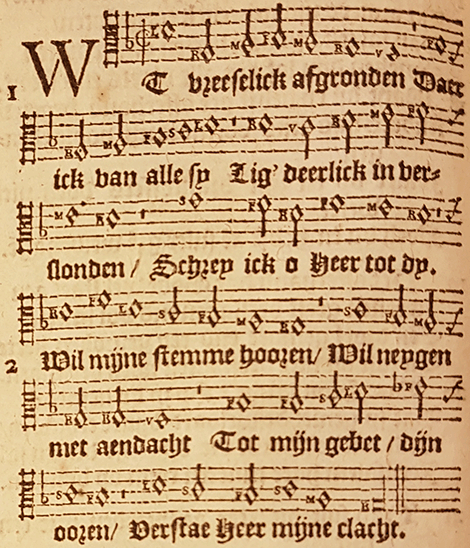 1 WT vreeſelick afgronden Daer
ick van alle ſy Lig' deerlick in ver=
ſlonden / Schrey ick o Heer tot dy.
2 Wil mijne ſtemme hooren/ Wil neygen
met aendacht Tot mijn gebet / dijn
ooren/ Verſtae Heer mijne clacht.